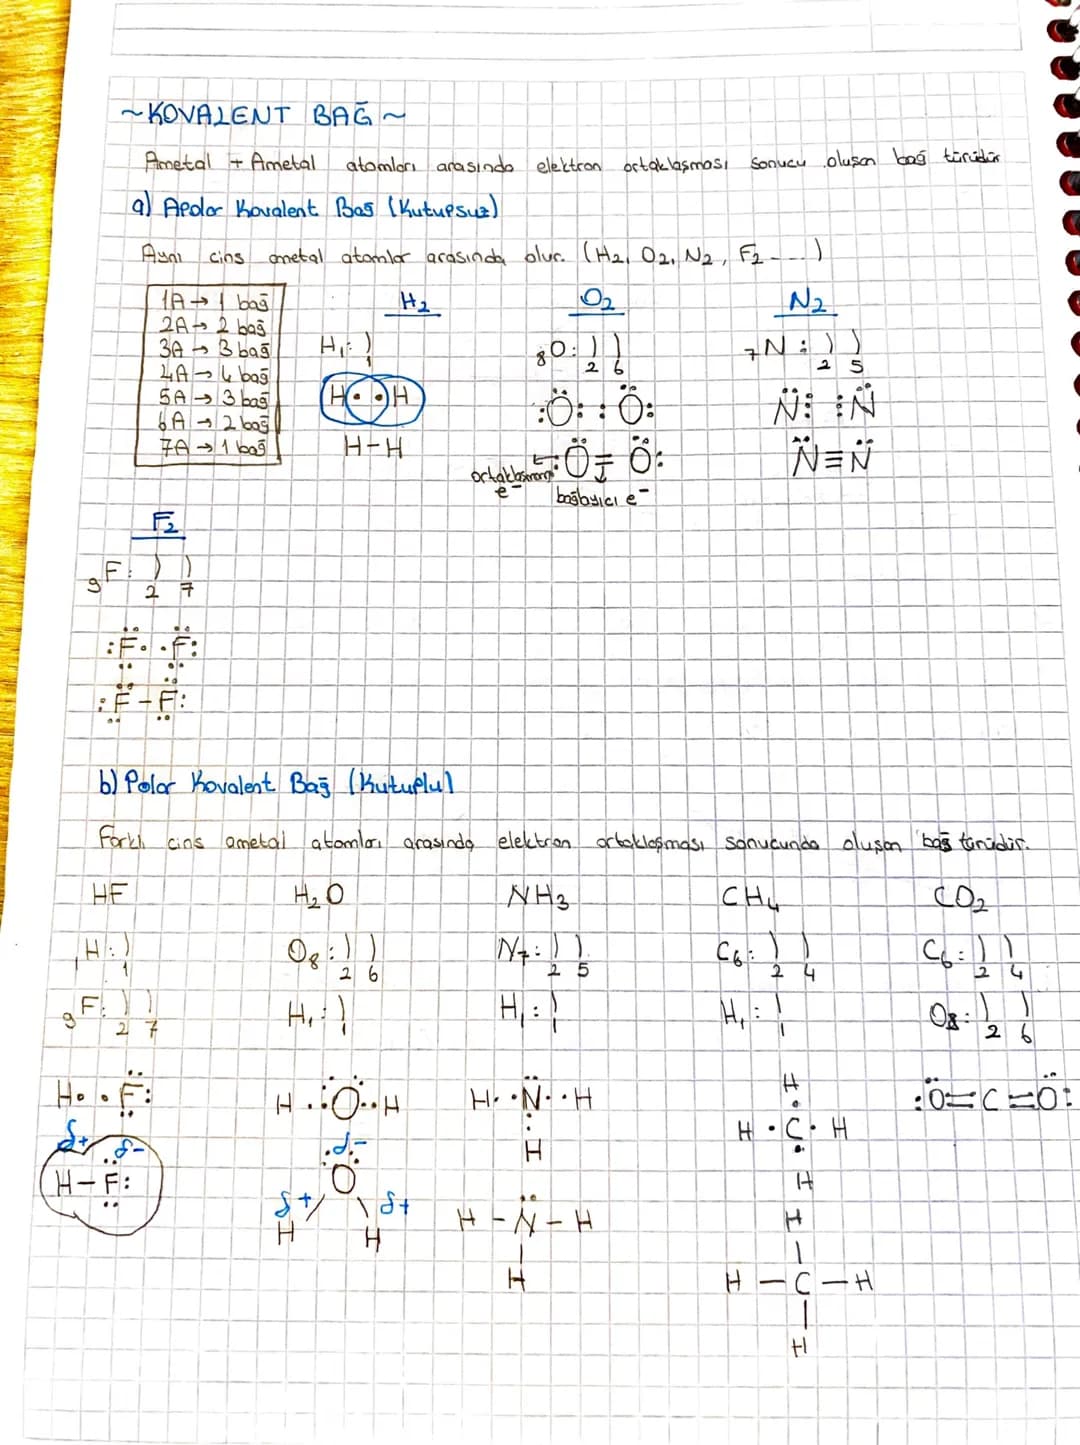 ~KOVALENT BAĞ~
Ametal + Ametal atomları arasında elektron ortaklaşması sonucu oluşan bağ türüdür
a) Apolar Kovalent Bağ (Kutupsuz)
Aynı cins ametal atomlar arasında olur. (H₂, O₂, N₂, F₂ ----)
1A → 1 bağ
2A → 2 bağ
3A → 3 bağ
4A → 4 bağ
5A → 3 bağ
6A → 2 bağ
7A → 1 bağ
H₂
H₁: )
1
H • • H
H-H
O₂
₈O: ) )
2 6
:Ö: :Ö:
:Ö = Ö:
e⁻
bağlayıcı e⁻
N₂
₇N : ) )
2 5
N̈⋮ ⋮N̈
N̈≡N̈
F₂
₉F: ) )
2 7
:F• •F:
:F-F:
b) Polar Kovalent Bağ (Kutuplu)
Farklı cins ametal atomları arasında elektron ortaklaşması sonucunda oluşan bağ türüdür.
HF H₂O NH₃ CH₄ CO₂
₁H: ) O₈: ) ) N₇: ) ) C₆: ) ) C₆: ) )
1 2 6 2 5 2 4 2 4
₉F: ) ) H₁: ) H₁: ) H₁: ) O₈: ) )
2 7 1 1 1 2 6
H• •F: H••Ö••H H••N••H
H
H
H • C • H
H
:Ö=C=Ö:
δ+ δ-
H-F:
δ-
O
δ+ δ+
H H
H - N̈ - H
|
H
H
|
H — C — H
|
H